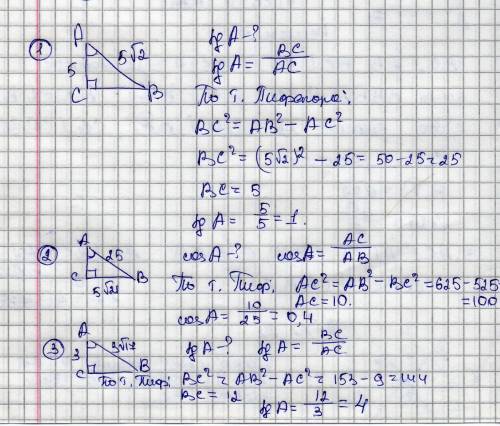 1
A
5√2
5
C
B
tg A-?
tg A = BC/AC
По т. Пифагора:
BC² = AB² - AC²
BC² = (5√2)² - 25 = 50-25=25
BC = 5
tg A = 5/5 = 1.
2
A
25
C
B
5√21
cos A-?
cos A = AC/AB
По т. Пиф. AC² = AB² - BC² = 625 - 525
= 100
AC = 10.
cos A = 10/25 = 0,4
3
A
3√17
3
C
B
tg A-?
tg A = BC/AC
По т. Пиф: BC² = AB² - AC² = 153 - 9 = 144
BC = 12
tg A = 12/3 = 4